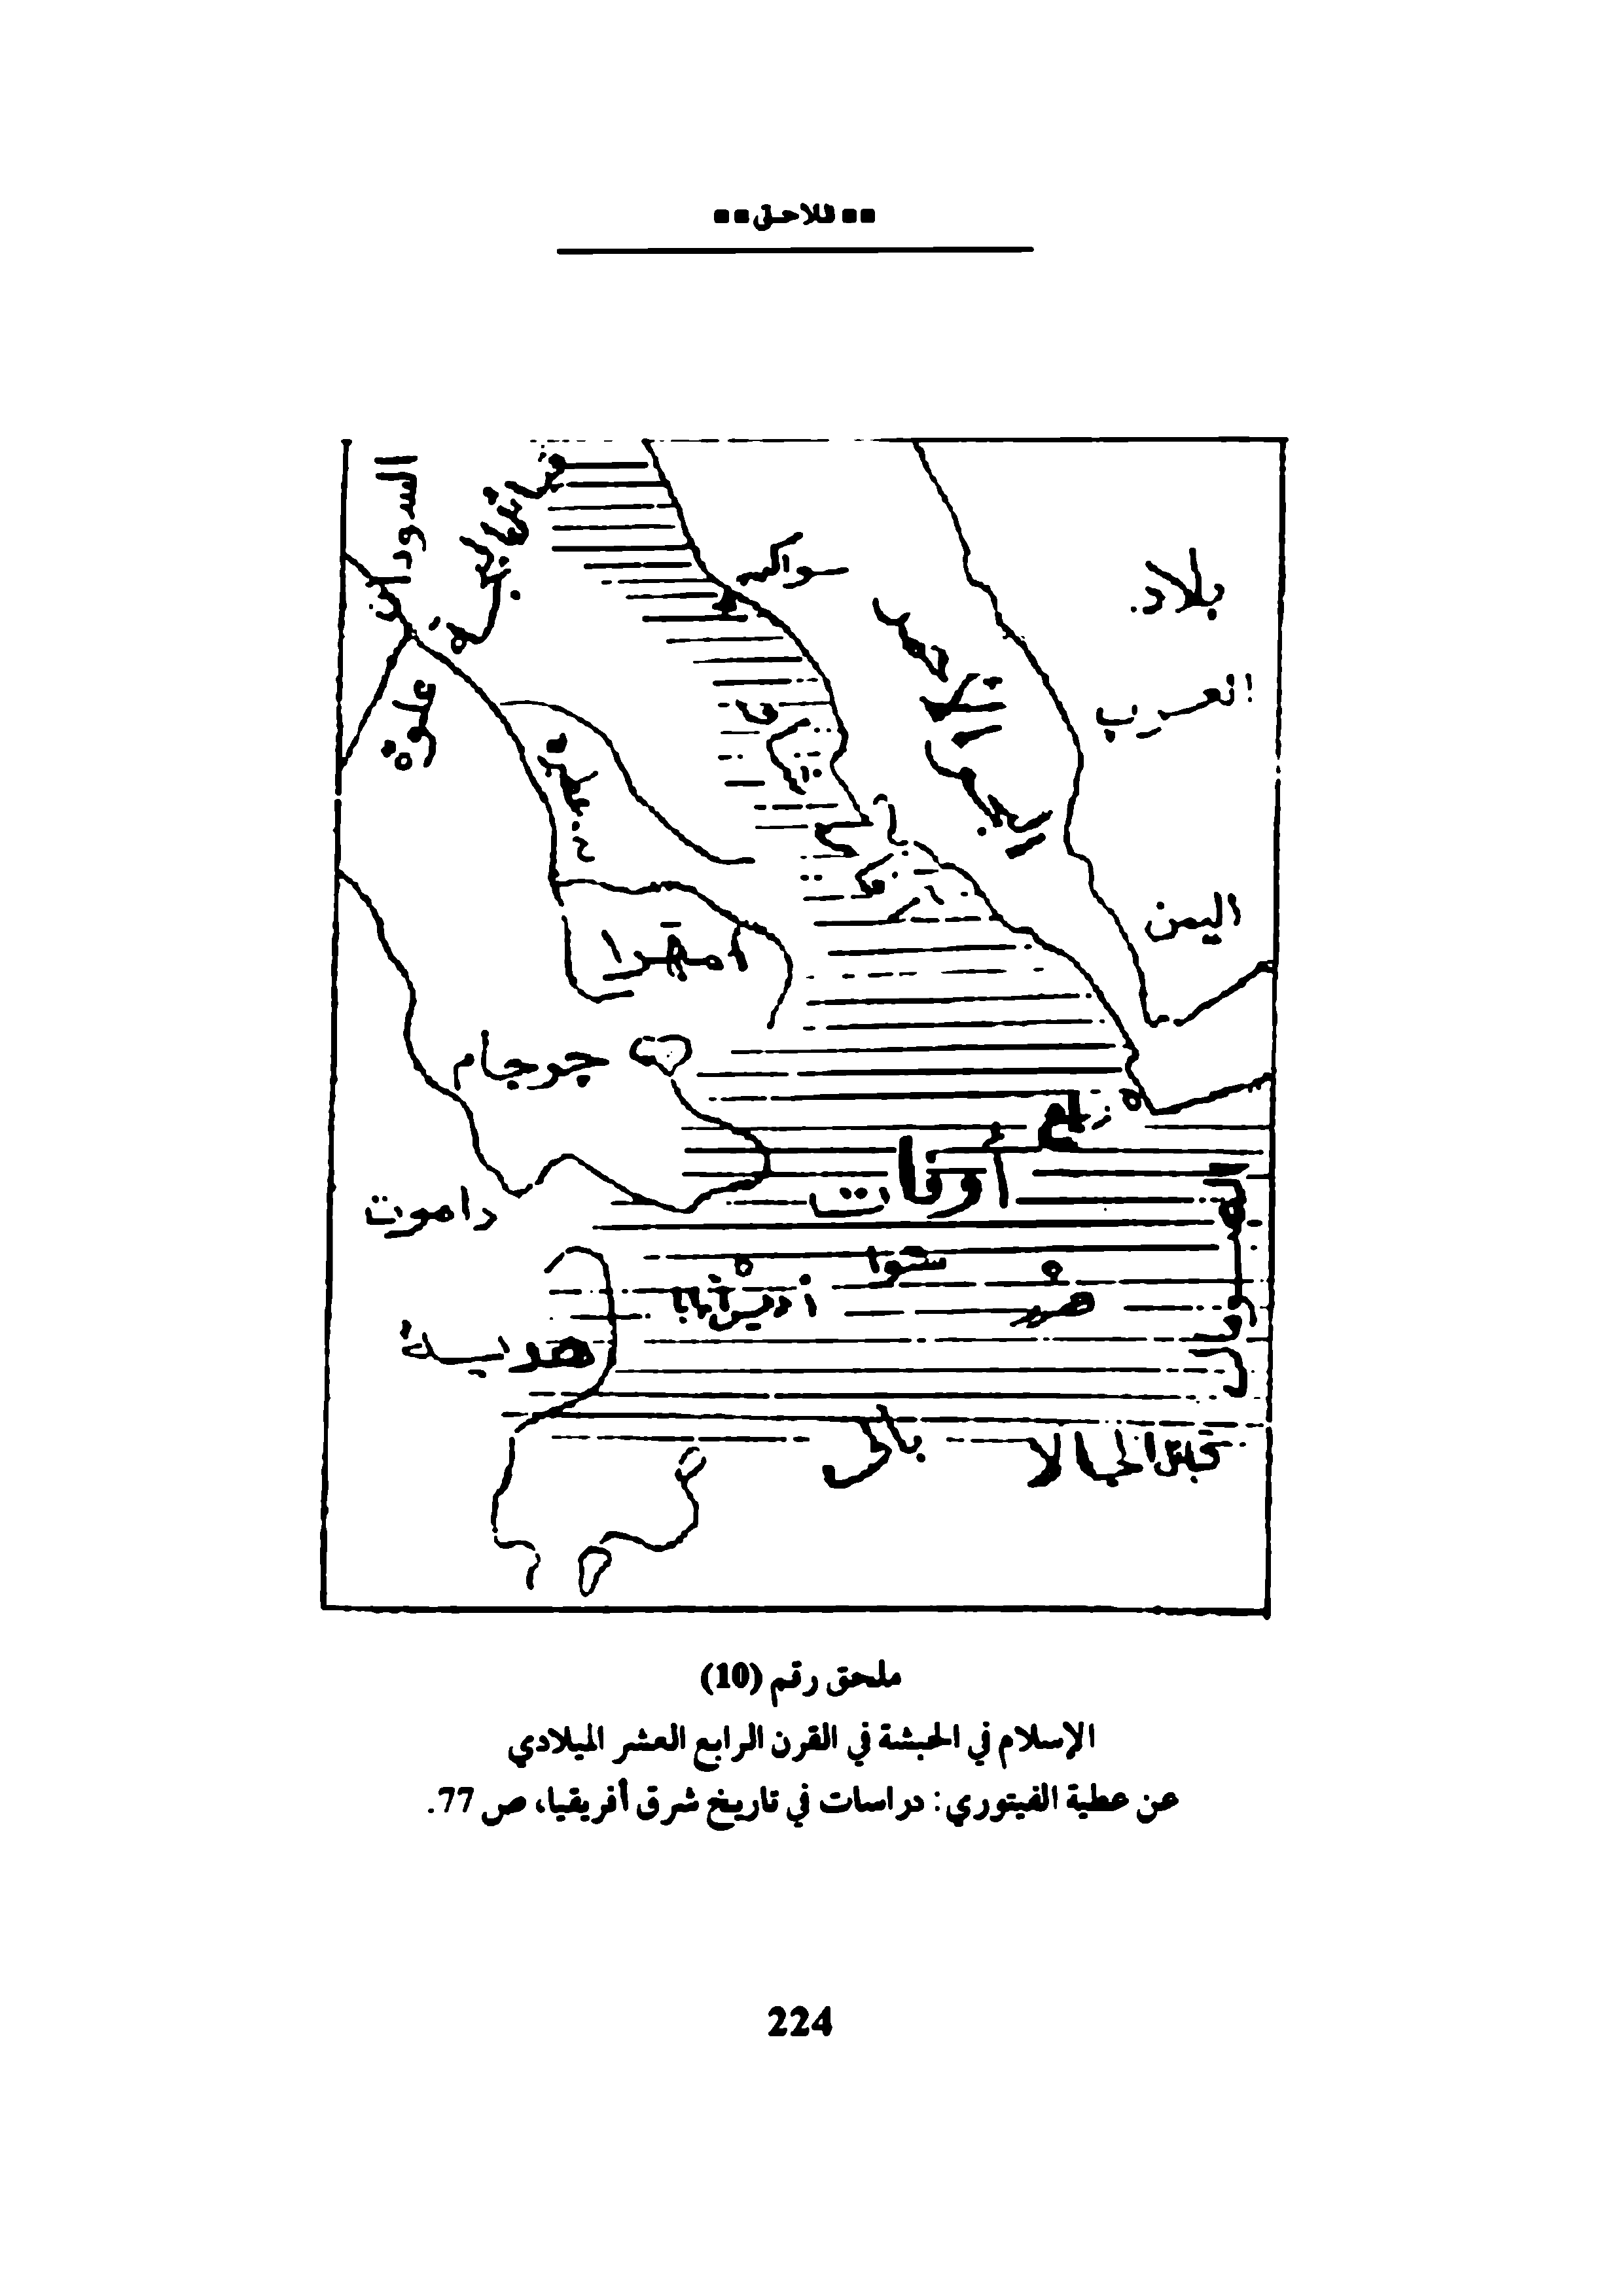 ■■ الملاحق ■■
السودان
سواكن
بلاد
العرب
علوة
اليمن
أمهرا
جوجام
زيلع
أوفات
داموت
شوا
أديس أبابا
هرر
هدية
بالى
قبائل الجالا
ملحق رقم (10)
الإسلام في الحبشة في القرن الرابع العشر الميلادي
عن عطية الفيتوري: دراسات في تاريخ شرق أفريقيا، ص 77.
224